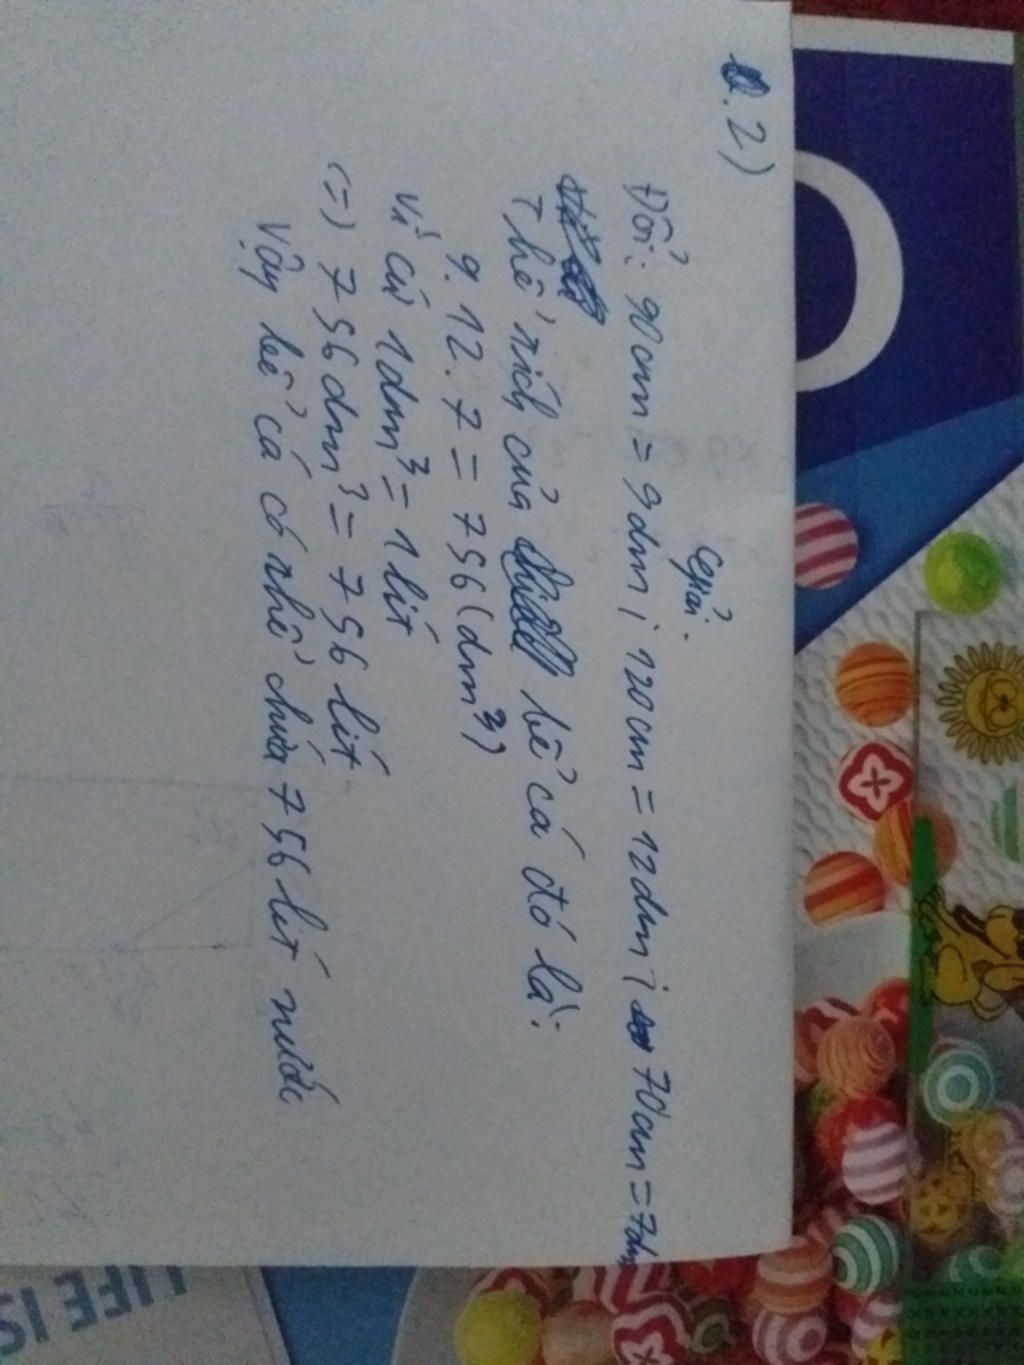 2)
Giải.
Đổi: 90cm = 9dm; 120cm = 12dm; 70cm = 7dm
Thể tích của bể cá đó là:
9.12.7 = 756 (dm³)
Vì cứ 1dm³ = 1 lít
(=) 756dm³ = 756 lít
Vậy bể cá có thể chứa 756 lít nước
LIFE IS